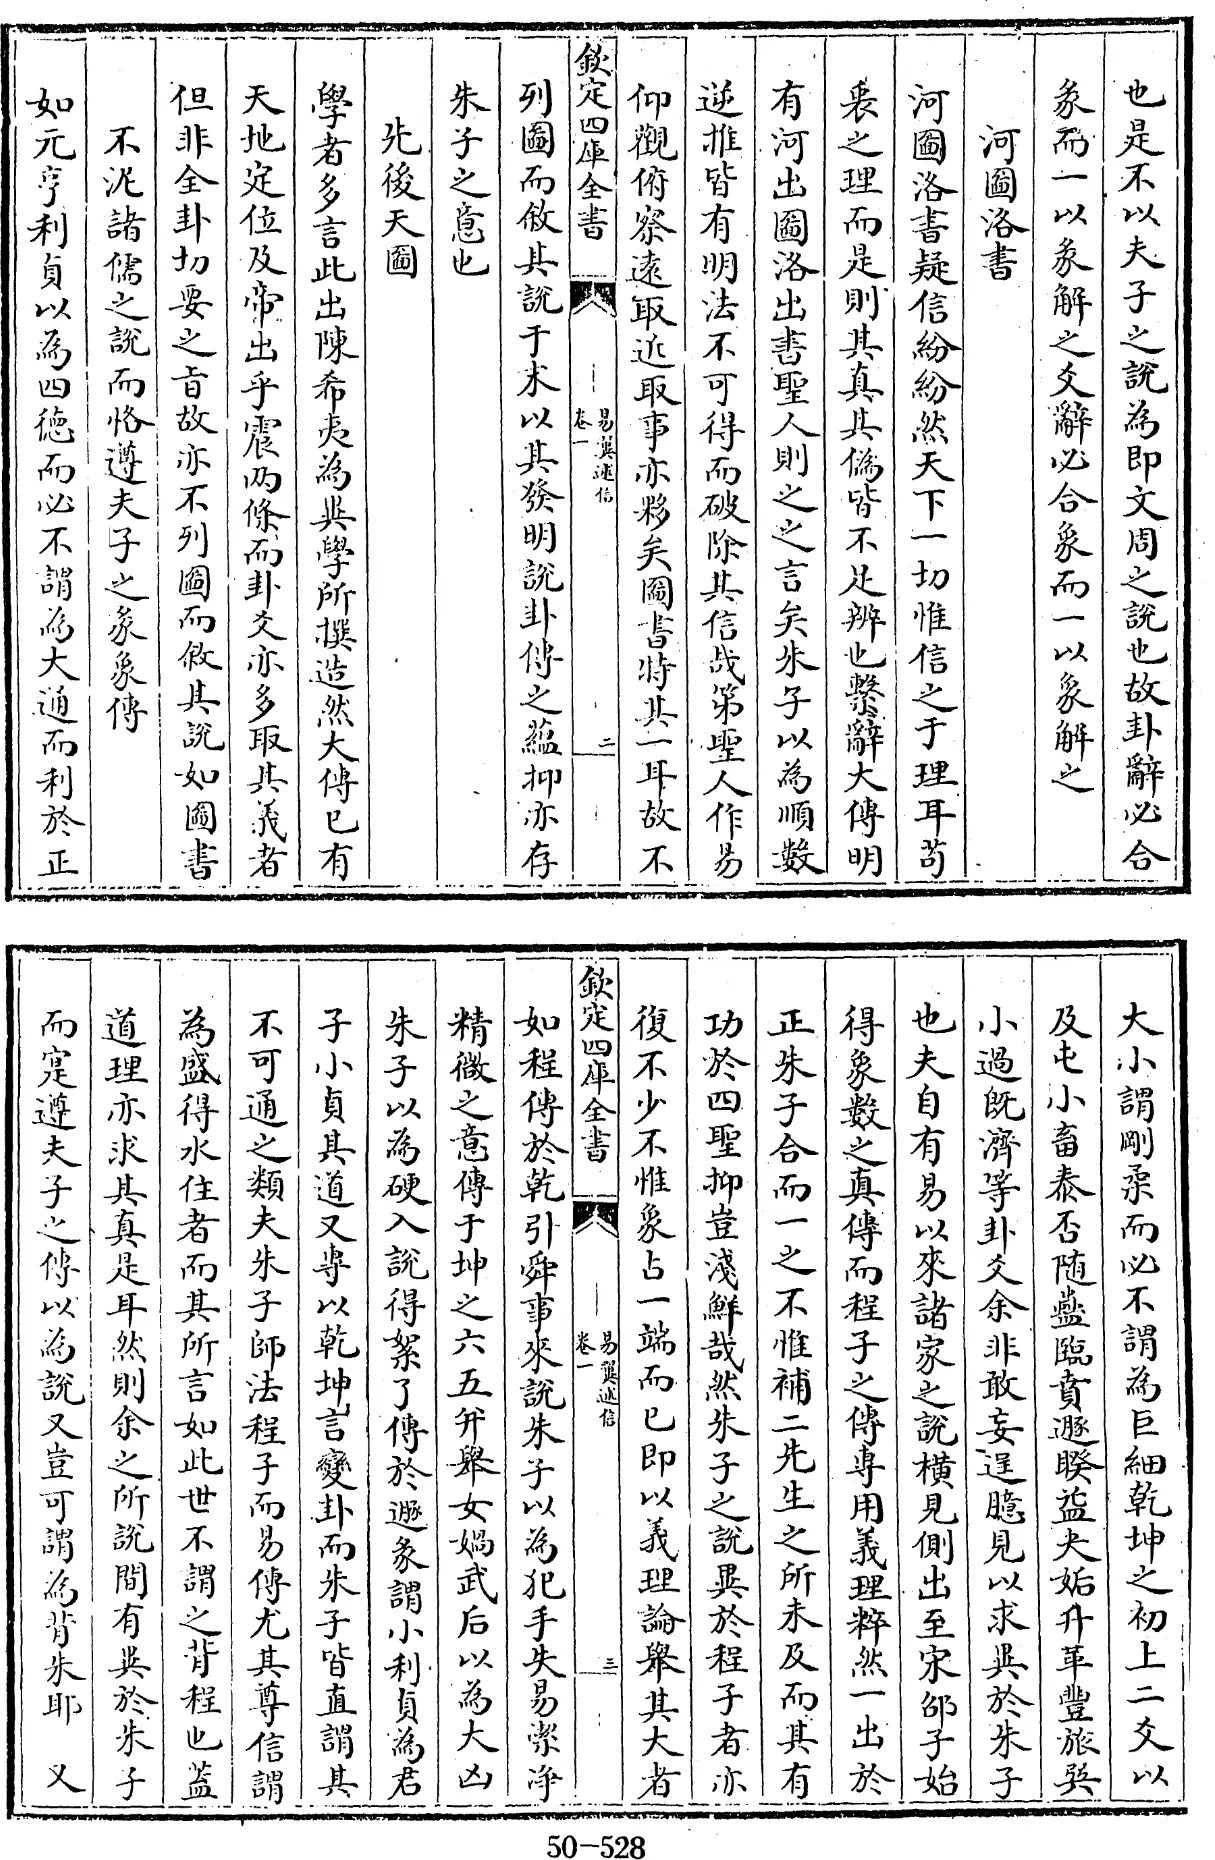 也是不以夫子之說為即文周之說也故卦辭必合
彖而一以彖解之爻辭必合象而一以象解之
河圖洛書
河圖洛書疑信紛紛然天下一切惟信之于理耳苟
衷之理而是則其真其偽皆不足辨也繫辭大傳明
有河出圖洛出書聖人則之之言矣朱子以為順數
逆推皆有明法不可得而破除其信哉第聖人作易
仰觀俯察遠取近取事亦夥矣圖書特其一耳故不
欽定四庫全書
易翼述信
卷一
二
列圖而敘其說于末以其發明說卦傳之蘊抑亦存
朱子之意也
先後天圖
學者多言此出陳希夷為異學所撰造然大傳已有
天地定位及帝出乎震兩條而卦爻亦多取其義者
但非全卦切要之旨故亦不列圖而敘其說如圖書
不泥諸儒之說而恪遵夫子之彖象傳
如元亨利貞以為四德而必不謂為大通而利於正
大小謂剛柔而必不謂為巨細乾坤之初上二爻以
及屯小畜泰否隨蠱臨賁遯睽益夬姤升革豐旅巽
小過既濟等卦爻余非敢妄逞臆見以求異於朱子
也夫自有易以來諸家之說橫見側出至宋邵子始
得象數之真傳而程子之傳專用義理粹然一出於
正朱子合而一之不惟補二先生之所未及而其有
功於四聖抑豈淺鮮哉然朱子之說異於程子者亦
復不少不惟象占一端而已即以義理論舉其大者
欽定四庫全書
易翼述信
卷一
三
如程傳於乾引舜事來說朱子以為犯手失易潔净
精微之意傳于坤之六五并舉女媧武后以為大凶
朱子以為硬入說得絮了傳於遯彖謂小利貞為君
子小貞其道又專以乾坤言變卦而朱子皆直謂其
不可通之類夫朱子師法程子而易傳尤其尊信謂
為盛得水住者而其所言如此世不謂之背程也蓋
道理亦求其真是耳然則余之所說間有異於朱子
而寔遵夫子之傳以為說又豈可謂為背朱耶　又
50-528